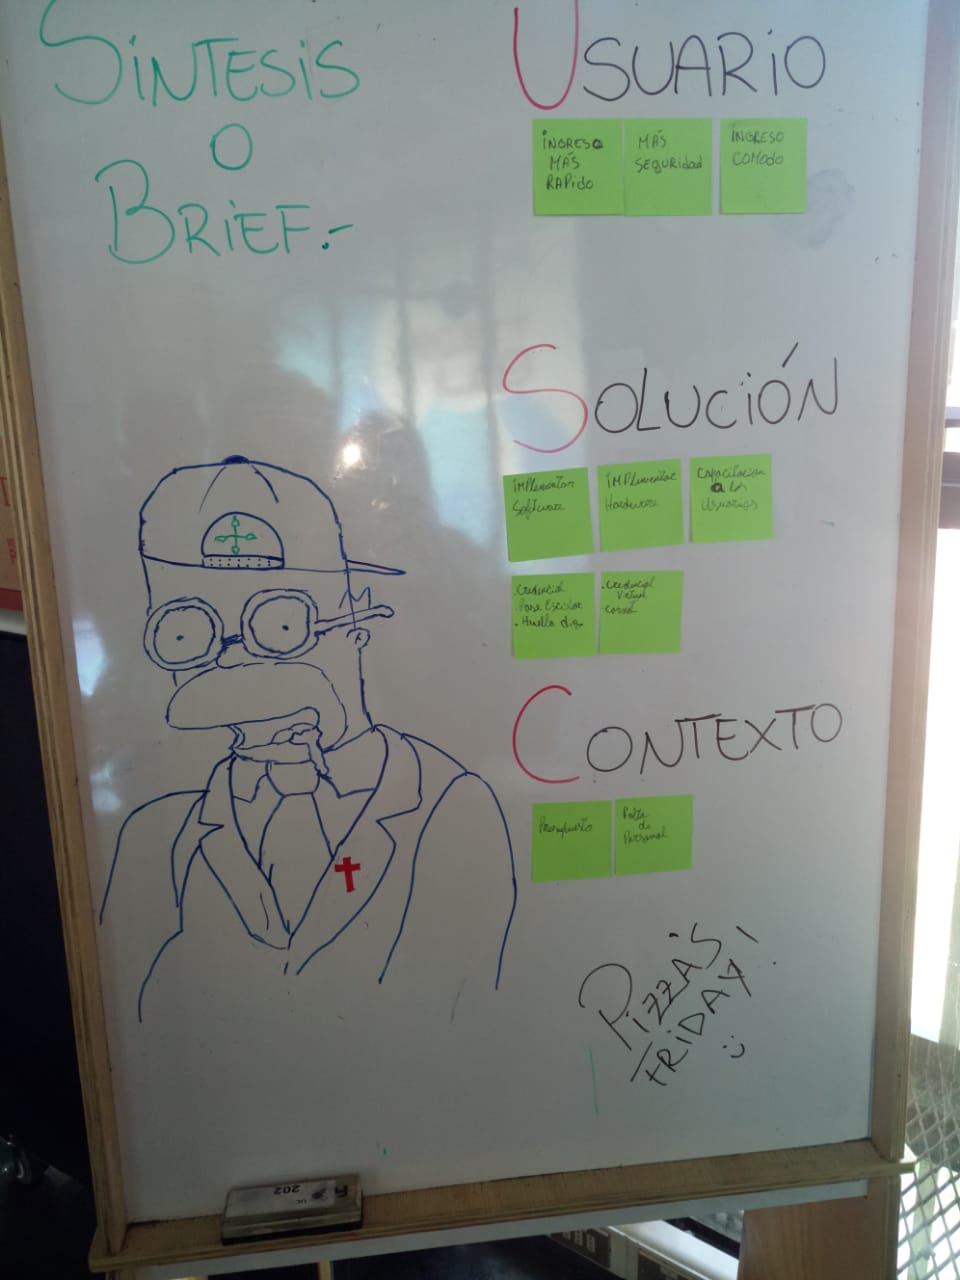 SÍNTESIS
O
BRIEF.-
USUARIO
INGRESO
MÁS
RAPIDO
MÁS
SEGURIDAD
INGRESO
COMODO
SOLUCIÓN
IMPlementar
Software
IMPlementar
Hardware
Capacitacion
a los
Usuarios
.Credencial
.Pase Escolar
.Huella dig.
.Credencial
Virtual
.Carnet
CONTEXTO
Presupuesto
Falta
de
Personal
PIZZA'S
FRIDAY!
:)
UC
202